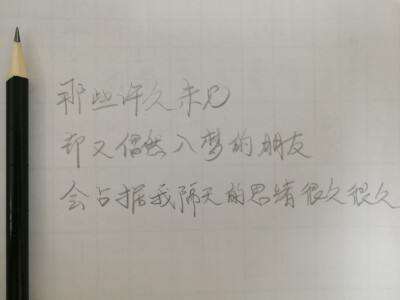 那些许久未见
却又偶然入梦的朋友
会占据我隔天的思绪很久很久